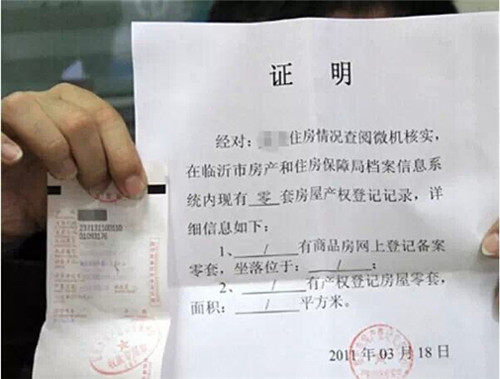 证明
经对：住房情况查阅微机核实，
在临沂市房产和住房保障局档案信息系
统内现有 零 套房屋产权登记记录，详
细信息如下：
1、 / 有商品房网上登记备案
零套，坐落位于： / ；
2、 / 有产权登记房屋零套，
面积： / 平方米。
2011 年 03 月 18 日